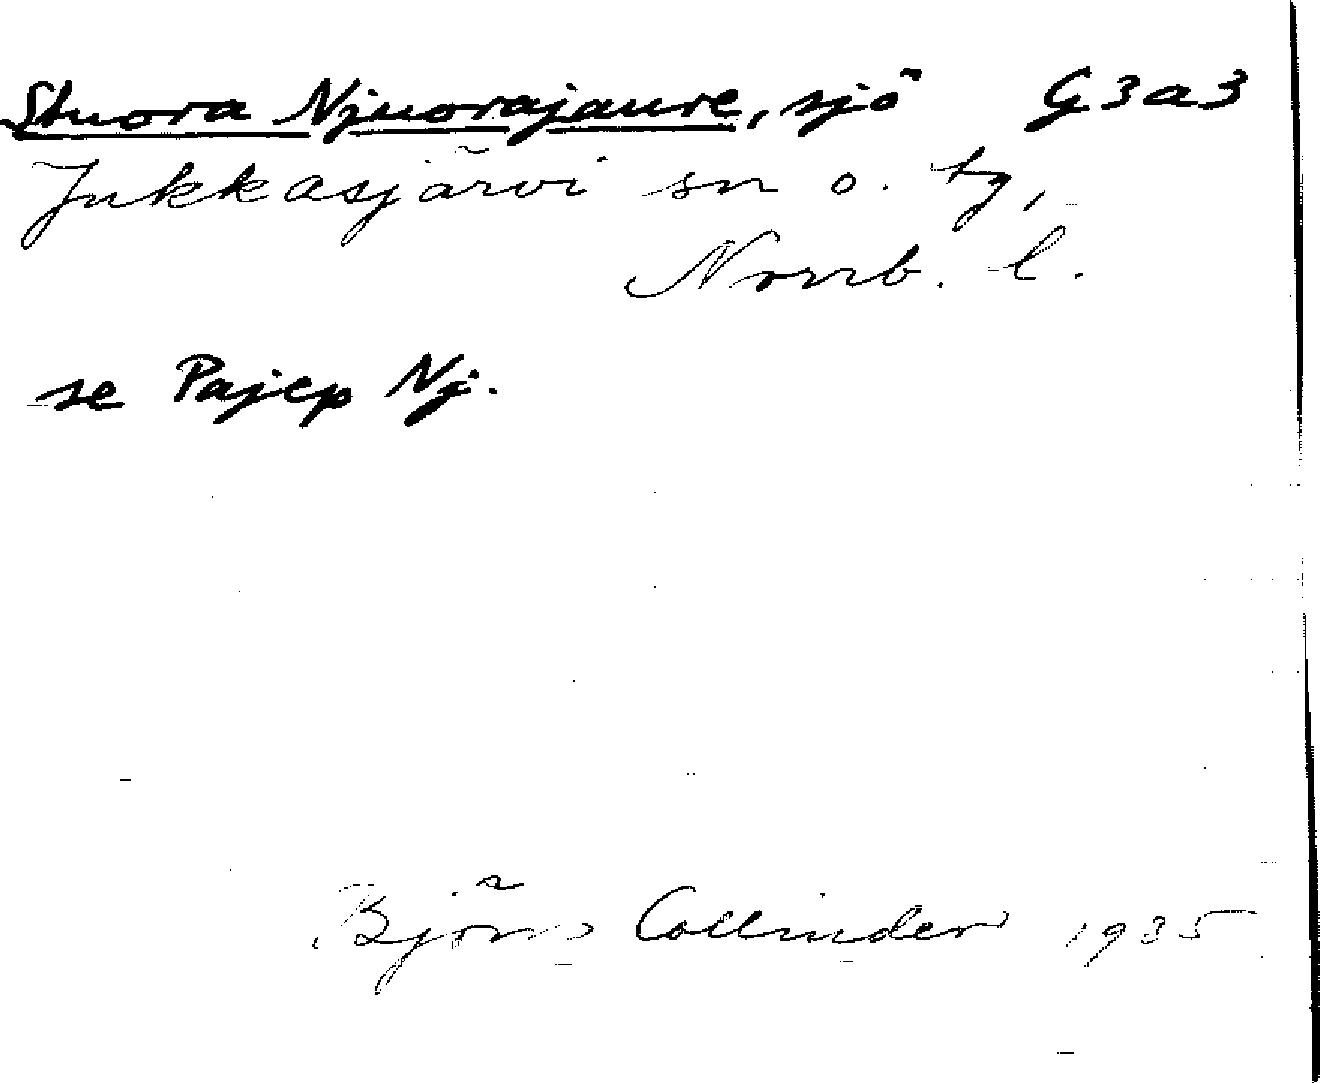 Stuora Njuorajaure, sjö G3a3
Jukkasjärvi sn o. tg,
Norrb. l.
se Pajep Nj.
Björn Collinder 1935